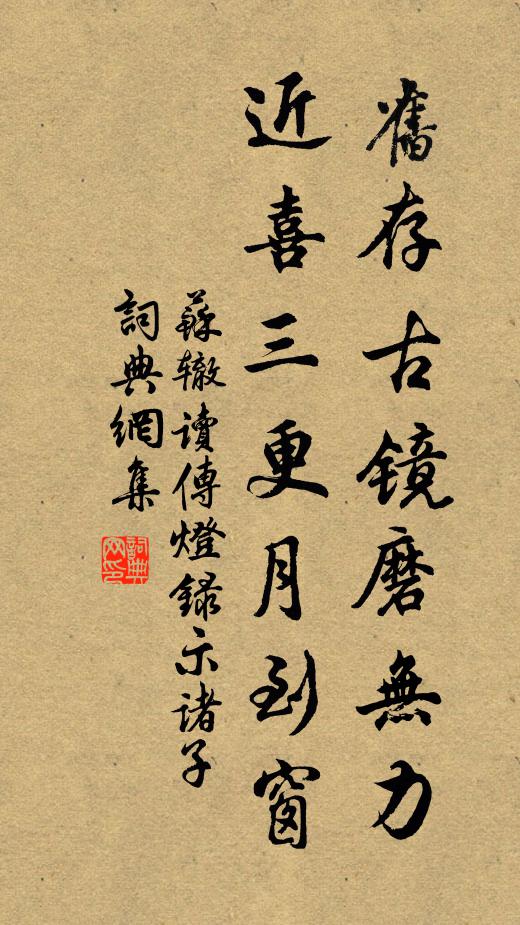 舊存古镜磨無力
近喜三更月到窗
蘇辙讀傳燈録示诸子
詞典網集
詞典网印